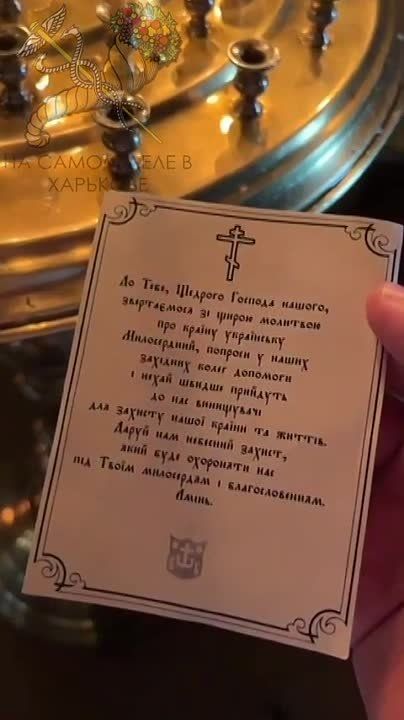 НА САМОМ ДЕЛЕ В
ХАРЬКОВЕ
До Тебе, Щедрого Господа нашого,
звертаємося зі щирою молитвою
про країну українську
Милосердний, попроси у наших
західних колег допомоги
і нехай швидше прийдуть
до нас винищувачі
для захисту нашої країни та життів.
Даруй нам небесний захист,
який буде охороняти нас
під Твоїм милосердям і благословенням.
Амінь.